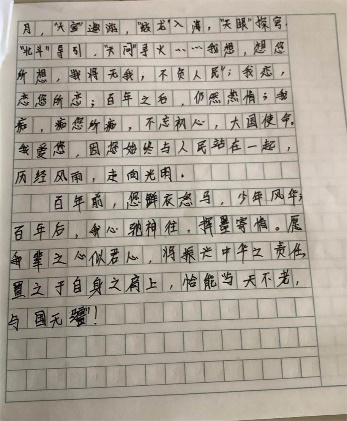 月，"天宫"遨游，"蛟龙"入海，"天眼"探穹，
"北斗"导引，"天问"寻火……我想，想您
所想，我将无我，不负人民；我恋，
恋您所恋；百年之后，仍然热情；我
痴，痴您所痴，不忘初心，大国使命。
我爱您，因您始终与人民站在一起，
历经风雨，走向光明。
百年前，您鲜衣怒马，少年风华；
百年后，我心驰神往，挥墨寄情。愿
我辈之心似君心，将振兴中华之责任
置之于自身之肩上，恰能当"天不老，
与国无疆"！